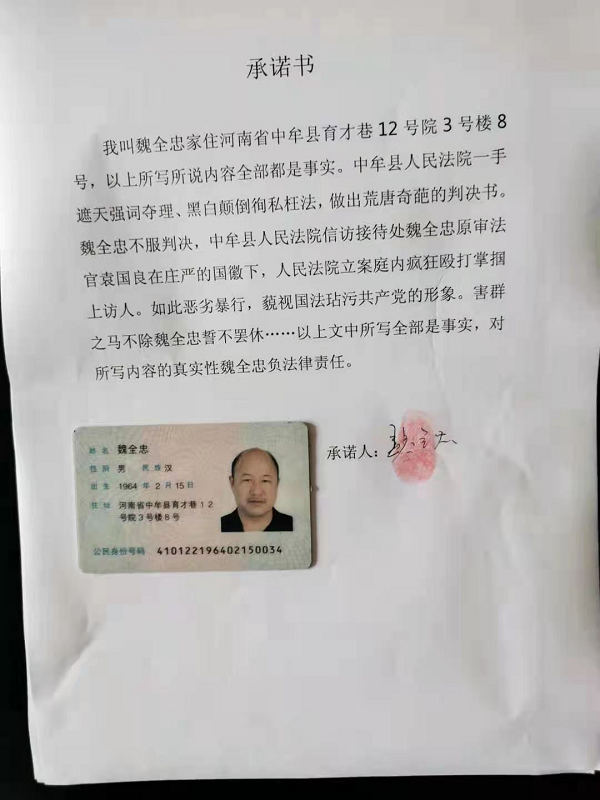 承诺书
我叫魏全忠家住河南省中牟县育才巷12号院3号楼8
号，以上所写所说内容全部都是事实。中牟县人民法院一手
遮天强词夺理、黑白颠倒徇私枉法，做出荒唐奇葩的判决书。
魏全忠不服判决，中牟县人民法院信访接待处魏全忠原审法
官袁国良在庄严的国徽下，人民法院立案庭内疯狂殴打掌掴
上访人。如此恶劣暴行，藐视国法玷污共产党的形象。害群
之马不除魏全忠誓不罢休……以上文中所写全部是事实，对
所写内容的真实性魏全忠负法律责任。
承诺人：魏全忠
姓名 魏全忠
性别 男 民族 汉
出生 1964 年 2 月 15 日
住址 河南省中牟县育才巷12
号院3号楼8号
公民身份号码 410122196402150034